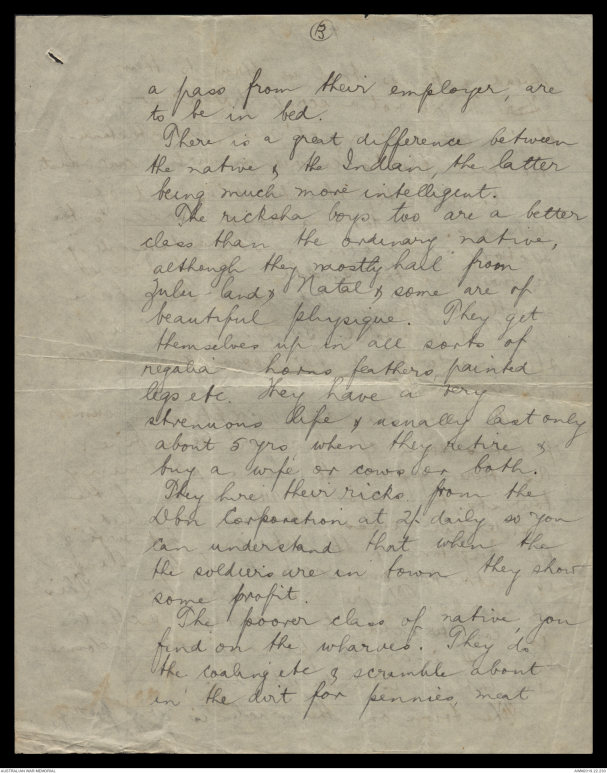 B
a pass from their employer, are
to be in bed.
There is a great difference between
the native & the Indian, the latter
being much more intelligent.
The ricksha boys too are a better
class than the ordinary native,
although they mostly hail from
Zulu-land & Natal & some are of
beautiful physique. They get
themselves up in all sorts of
regalia horns feathers, painted
legs etc. They have a very
strenuous life & usually last only
about 5 yrs, when they retire &
buy a wife or cows or both.
They hire their ricks. from the
Dbn Corporation at 2/- daily so you
can understand that when the
the soldiers are in town they show
some profit.
The poorer class of native, you
find on the wharves. They do
the coaling etc & scramble about
in the dirt for pennies, meat
AUSTRALIAN WAR MEMORIAL